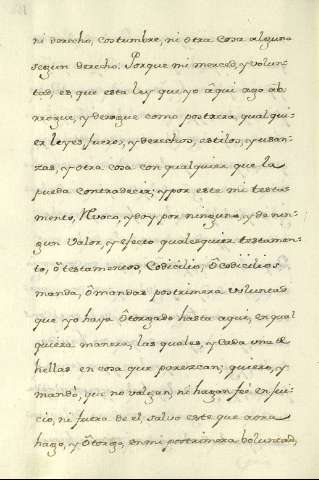 ni derecho, costumbre, ni otra cosa alguno
segun derecho. Porque mi merced, y volun-
tad, es, que esta ley que yo âqui ago ab
rrogue, y derogue como postrera qualqui-
er leyes, fueros, y derechos, estilos, y usan-
zas, y otra cosa con qualquier que la
pueda contradecir; y por este mi testa-
mento, Rivoco, y doy por ninguno, y de nin-
gun valor, y efecto qualesquiera testamen-
to, ô testamentos, Codicilio, ô Codicilios
manda, ô mandas postrimera voluntad
que yo haya ôtorgado hasta aqui, en qual
quiera manera, las quales, y cada una de
hellas en cosa que parezcan; quiero, y
mando, que no valgan, ni hagan feé en jui-
cio, ni fuera de el, salvo este que aora
hago, y ôtorgo, en mi postrimera boluntad,